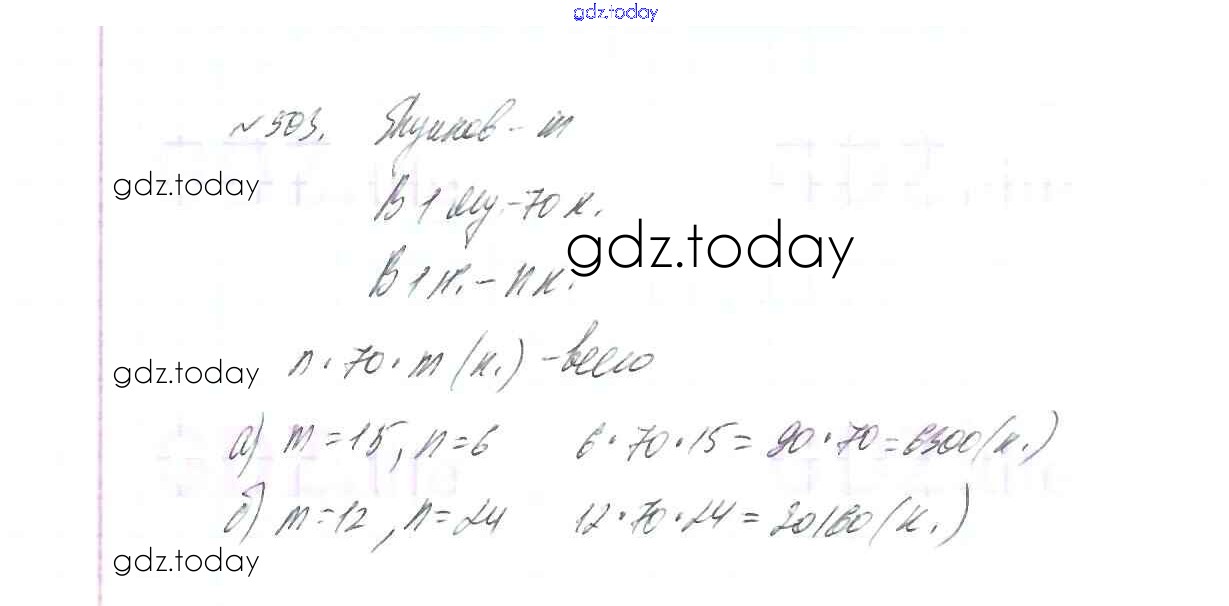 gdz.today
№ 503. Ящиков - m
gdz.today
В 1 ящ. - 70 к.
gdz.today
В 1 к. - n к.
n · 70 · m (к.) - всего
gdz.today
а) m = 15, n = 6 6 · 70 · 15 = 90 · 70 = 6300 (к.)
б) m = 12, n = 24 12 · 70 · 24 = 20160 (к.)
gdz.today